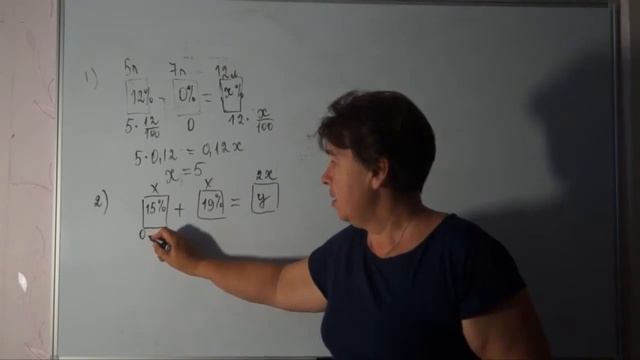 1)
5л 7л 12л
12% 0% = x%
5 · 12/100 0 12 · x/100
5 · 0,12 = 0,12x
x = 5
2)
x x 2x
15% + 19% = y
0